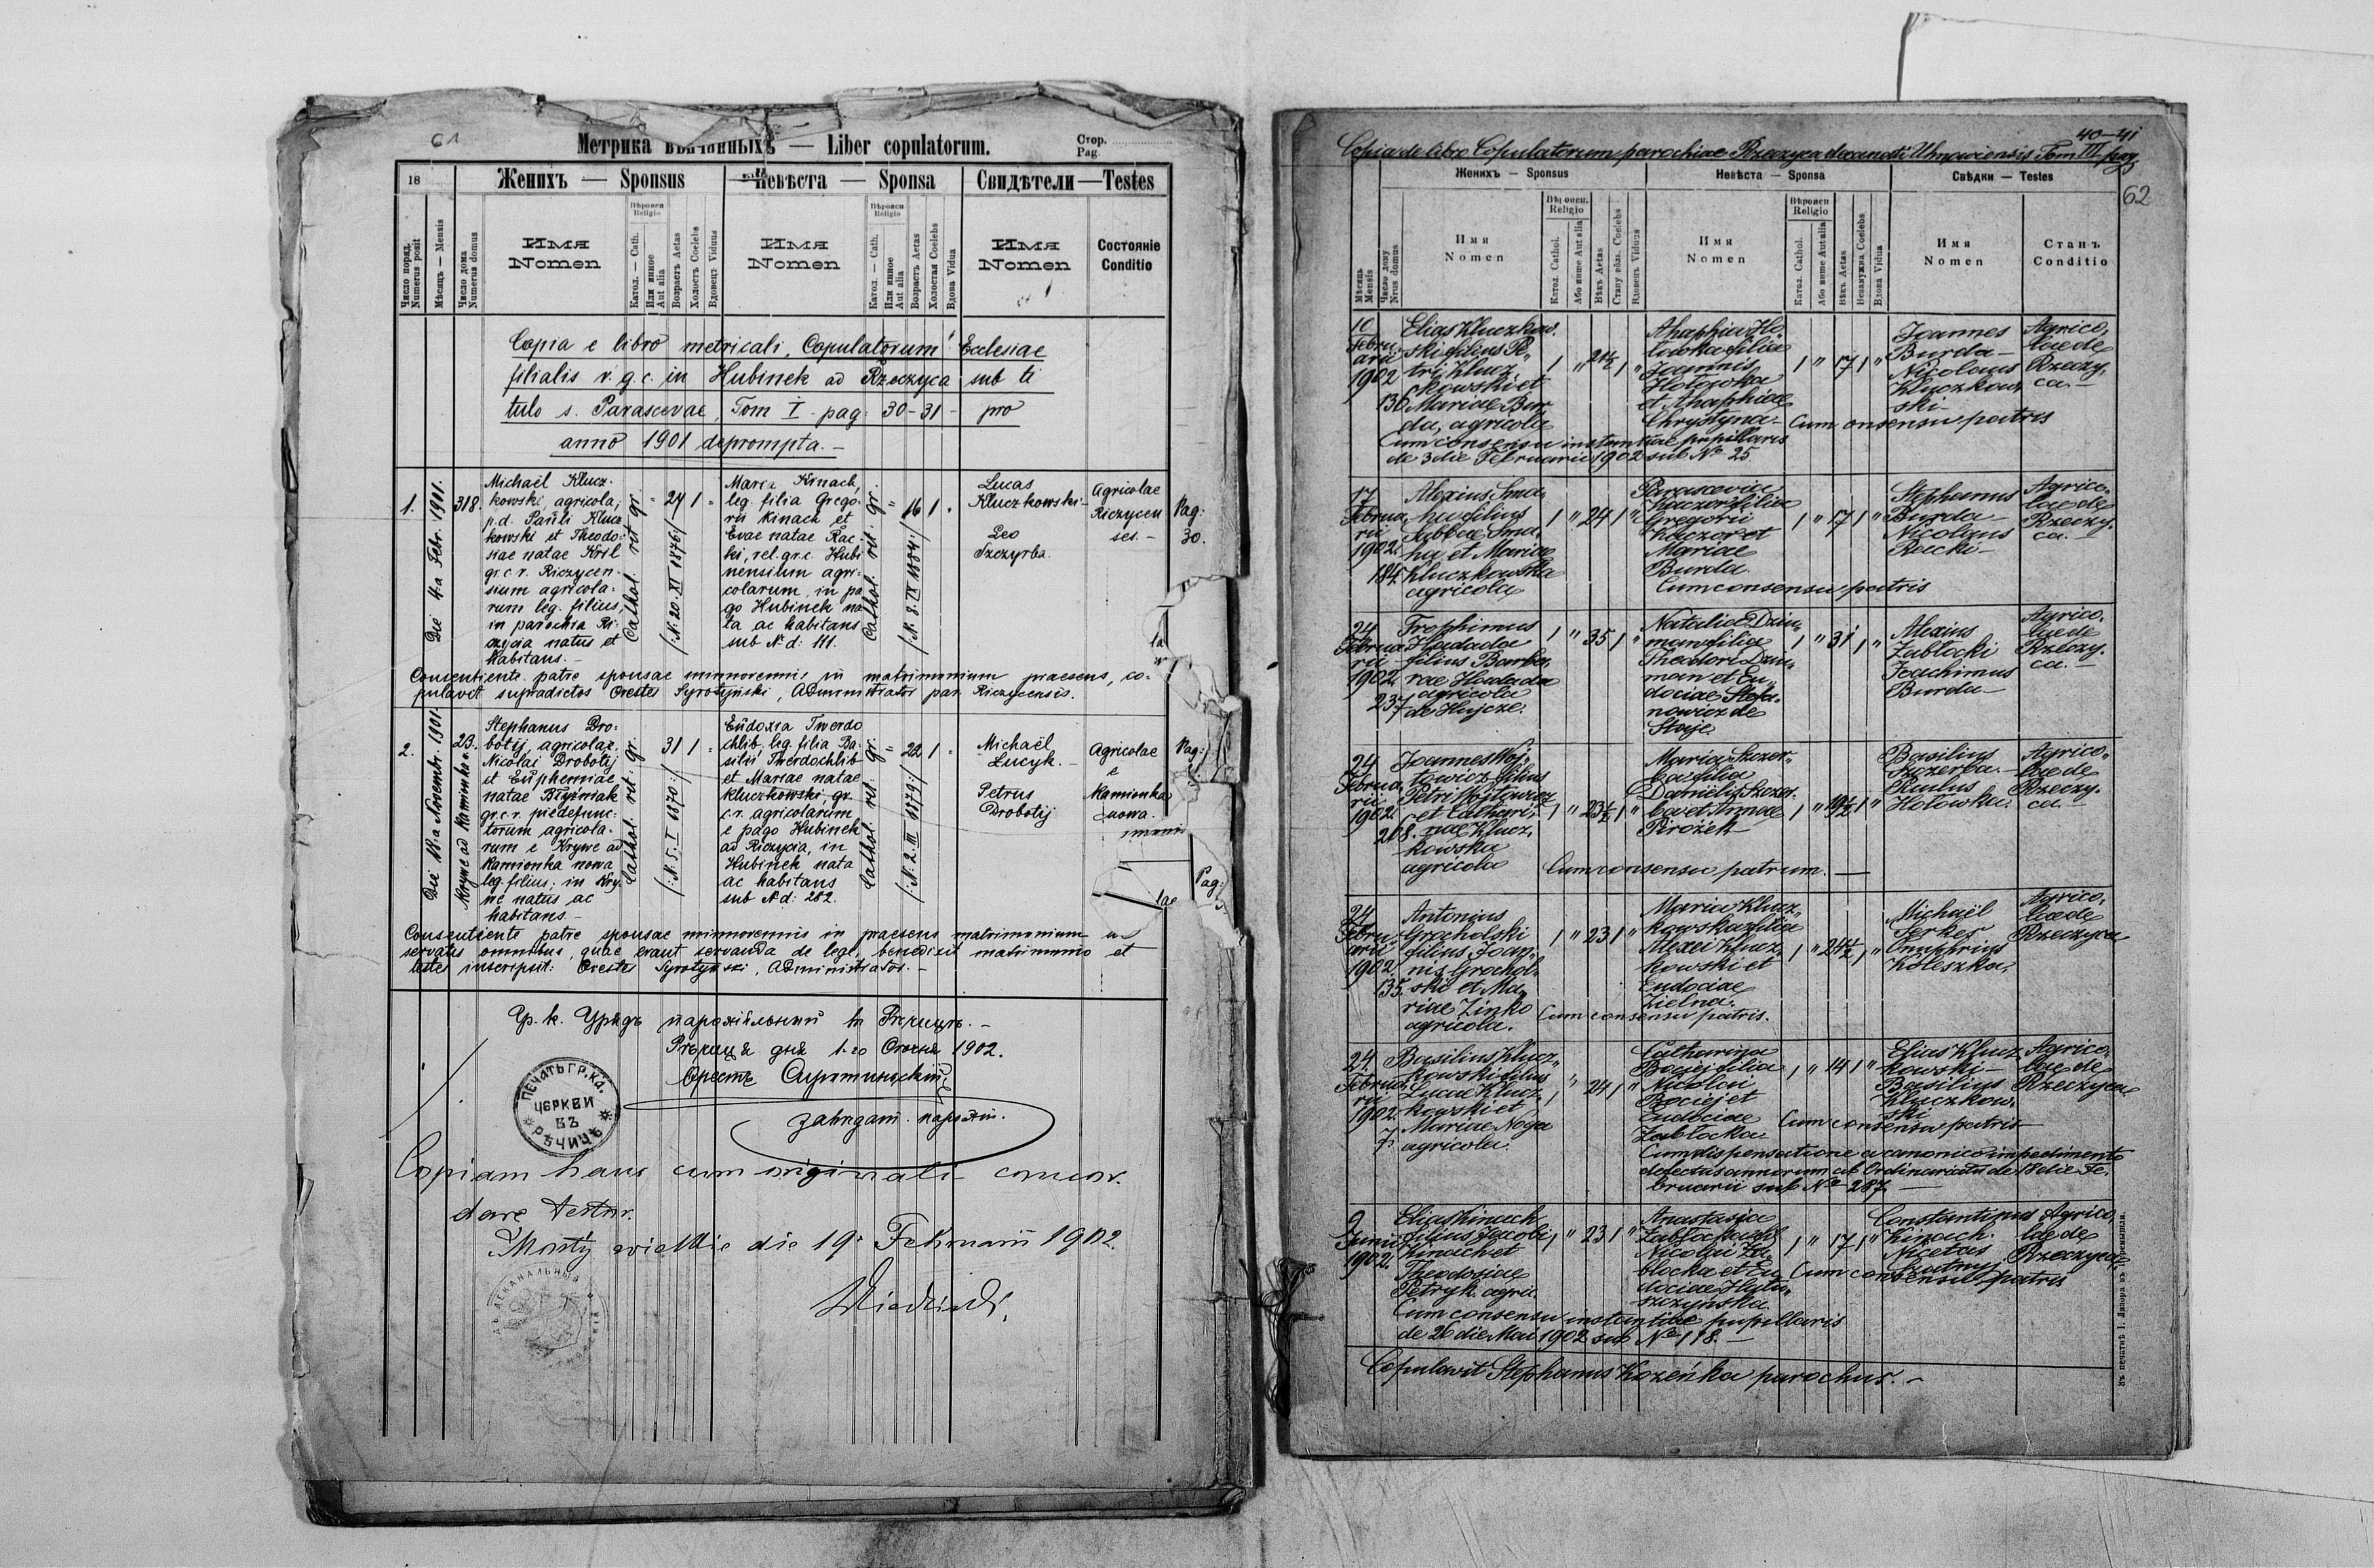 61
Метрика вѣнчанныхъ — Liber copulatorum.
Стор.
Pag.
18
Женихъ — Sponsus
Невѣста — Sponsa
Свидѣтели — Testes
Число поряд.
Numerus posit
Мѣсяцъ — Mensis
Число дома
Numerus domus
Имя
Nomen
Вѣроисп.
Religio
Катол. — Cath.
Или инное
Aut alia
Возрастъ Aetas
Холостъ Coelebs
Вдовецъ Viduus
Имя
Nomen
Вѣроисп.
Religio
Катол. — Cath.
Или инное
Aut alia
Возрастъ Aetas
Холостая Coelebs
Вдова Vidua
Имя
Nomen
Состояніе
Conditio
Copia e libro metricali „Copulatorum" Ecclesiae
filialis r. g. c. in Hubinek ad Rzeczyca sub ti
tulo s. Parascevae, Tom I pag: 30-31 - pro
anno 1901 deprompta. —
1.
Die 4:a Febr. 1901.
318.
Michaël Klucz-
kowski agricola,
p.d. Pauli Klucz
kowski et Theodo-
siae natae Kril
gr.c.r. Riczycen-
sium agricola-
rum leg. filius,
in parochia Ri-
czycia natus et
habitans. —
Cathol. rit. gr.
" 24 1 "
/:N: 20. XI 1876:/
Maria Kinach,
leg. filia Grego-
rii Kinach et
Evae natae Rac-
ki, rel. gr.c. Hubi
nensium agri-
colarum, in pa
go Hubinek na
ta ac habitans
sub N: d: 111.
Cathol. rit. gr.
" 16 1 "
/:N: 8. IV 1884:/
Lucas
Kluczkowski —
Leo
Szczyrba.
Agricolae
Riczycen
ses. —
Pag:
30.
Consentiente patre sponsae minorennis in matrimonium praesens, co-
pulavit supradictos Orestes Syrotyński, Administrator par. Riczycensis.
2.
Die 18:a Novembr. 1901.
Krywe ad Kamionka n.
23.
Stephanus Dro-
botij, agricolae,
Nicolai Drobotij
et Euphemiae
natae Błyźniak
gr.c.r. piedefunc-
torum agricola-
rum e Krywe ad
Kamionka nowa
leg. filius; in Kry-
we natus ac
habitans. —
Cathol. rit. gr.
31 1 "
/:N: 5. I 1870:/
Eudoxia Twerdo
chlib, leg. filia Ba-
silii Twerdochlib
et Mariae natae
Kluczkowski, gr.
c.r. agricolarum
e pago Hubinek
ad Riczycia, in
Hubinek nata
ac habitans
sub N: d: 282.
Cathol. rit. gr.
" 22 1 "
/:N: 2. III 1879:/
Michaël
Lucyk. —
Petrus
Drobotij
Agricolae
e
Kamionka
nowa.
Pag:
Pag:
Consentiente patre sponsae minorennis in praesens matrimonium
servatis omnibus, quae erant servanda de lege, benedixit matrimonio et
testes inscripsit: Orestes Syrotyński, Administrator. —
Гр. к. Урядъ парохіяльный въ Рѣчицѣ. —
Рѣчиця дня 1-го Січня 1902.
Орестъ Сиротиньскій
завѣдат. парохіи.
ПЕЧАТЬ ГР.КА.
ЦЕРКВИ
ВЪ
РѢЧИЦѢ
Copiam hanc cum originali concor-
dare testor.
Mosty wielkie die 19: Februarii 1902.
40-41
Copia de libro Copulatorum parochiae Rzeczyca decanati Uhnoviensis Tom III pag
62
Женихъ — Sponsus
Невѣста — Sponsa
Свѣдки — Testes
Мѣсяць
Mensis
Число дому
Nrus domus
Имя
Nomen
Вѣроисп.
Religio
Катол. Cathol.
Або инше Aut alia
Вѣкъ Aetas
Стану вѣльн. Coelebs
Вдовець Viduus
Имя
Nomen
Вѣроисп
Religio
Катол. Cathol.
Або инше Aut alia
Вѣкъ Aetas
Незамужна Coelebs
Вдова Vidua
Имя
Nomen
Станъ
Conditio
10
Febru
arii
1902
130
Elias Kluczkow.
ski filius Pe„
tri Klucz
kowski et
Mariae Bur„
da, agricola
1 " 21½ 1 "
Ahaphia Ho.
łowka filia
Joannis
Hołowka
et Ahaphiae
Chrystyna —
1 " 17 1 "
Joannes
Burda —
Nicolaus
Kluczkow„
ski —
Agrico„
lae de
Rzeczy.
ca. —
Cum consensu patris
Cum consensu instantiae pupillaris
de 3 die Februarii 1902 sub No 25
17
Februa„
rii
1902.
184
Alexius Sma„
ha filius
Sabbae Sma„
ha et Mariae
Kluczkowska
agricola
1 " 24 1 "
Parascevia
Kaczor filia
Gregorii
Kaczor et
Mariae
Burda.
1 " 17 1 "
Stephanus
Burda —
Nicolaus
Racki —
Agrico„
lae de
Rzeczy.
ca. —
Cum consensu patris
24
Februa
rii
1902.
237
Trophimus
Hadada
filius Barba„
rae Hadada
agricola
de Hujcze.
1 " 35 1 "
Natalia Dziu„
man filia
Theodori Dziu„
man et Eu„
dociae Stefa„
nowicz de
Staje.
1 " 31 1 "
Alexius
Zabłocki
Joachimus
Burda —
Agrico.
lae de
Rzeczy.
ca. —
24
Februa„
rii
1902.
208.
Joannes Woj„
towicz filius
Petri Wojtowicz
et Cathari„
nae Klucz„
kowska
agricola
1 " 23½ 1 "
Maria Szczer„
ba filia
Danielis Szczer„
ba et Annae
Pirożek —
1 " 19½ 1 "
Basilius
Szczerba. —
Paulus
Hołowka.
Agrico„
lae de
Rzeczy.
ca —
Cum consensu patrum. —
24
Febru„
arii
1902.
135.
Antonius
Grocholski
filius Joan„
nis Grochol„
ski et Ma„
riae Zinko
agricola.
1 " 23 1 "
Maria Klucz„
kowska filia
Alexei Klucz„
kowski et
Eudociae
Zielna.
1 " 24½ 1 "
Michaël
Ferkes
Onuphrius
Koleszka.
Agrico.
lae de
Rzeczyca
Cum consensu patris.
24
Februa
rii
1902.
7.
Basilius Klucz„
kowski filius
Lucae Klucz„
kowski et
Mariae Noga
agricola.
1 " 24 1 "
Catharina
Bociej filia
Nicolai
Bociej et
Eudociae
Zabłocka
1 " 14 1 "
Elias Klucz„
kowski —
Basilius
Kluczkow„
ski
Agrico.
lae de
Rzeczyca
Cum consensu patris —
Cum dispensatione a canonico impedimento
defectus annorum ab Ordinariatu de 18 die Fe„
bruarii sub No 287. —
9
Junii
1902.
Elias Kinach
filius Jacobi
Kinach et
Theodosiae
Petryk agric.
1 " 23 1 "
Anastasia
Zabłocka fil.
Nicolai Za„
błocka et Eu„
dociae Hłu„
szczyńska.
1 " 17 1 "
Constantinus
Kinach.
Nicetas
Szatnyj
Agrico„
lae de
Rzeczyca
Cum consensu patris
Cum consensu instantiae pupillaris
de 26 die Mai 1902 sub No 118. —
Copulavit Stephanus Kozeńka parochus. —